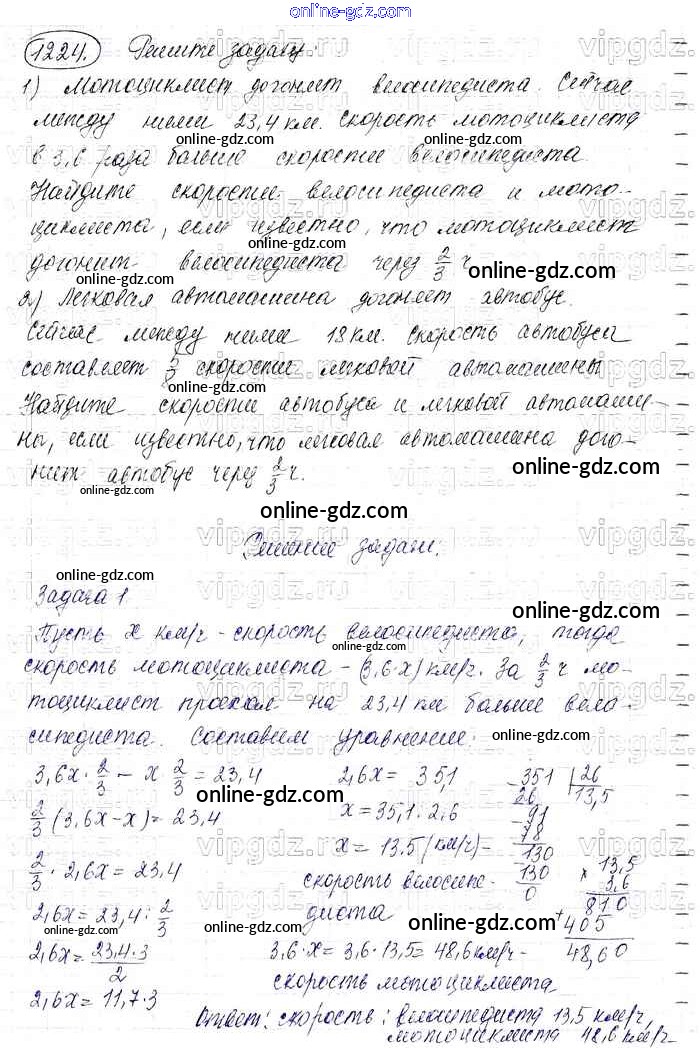 1224. Решите задачу:
1) Мотоциклист догоняет велосипедиста. Сейчас
между ними 23,4 км. Скорость мотоциклиста
в 3,6 раза больше скорости велосипедиста.
Найдите скорости велосипедиста и мото-
циклиста, если известно, что мотоциклист
догонит велосипедиста через 2/3 ч
2) Легковая автомашина догоняет автобус.
Сейчас между ними 18 км. Скорость автобуса
составляет скорости легковой автомашины
Найдите скорости автобуса и легковой автомаши-
ны, если известно, что легковая автомашина дого-
нит автобус через 2/3 ч.
Решение задачи:
Задача 1
Пусть x км/ч - скорость велосипедиста, тогда
скорость мотоциклиста - (3,6·x) км/ч. За 2/3 ч мо-
тоциклист проехал на 23,4 км больше вело-
сипедиста. Составим уравнение:
3,6x · 2/3 - x 2/3 = 23,4
2/3 (3,6x-x) = 23,4
2/3 · 2,6x = 23,4
2,6x = 23,4 : 2/3
2,6x = 23,4·3/2
2,6x = 11,7·3
2,6x = 35,1
x = 35,1 : 2,6
x = 13.5 (км/ч) -
скорость велосипе-
диста
3,6·x = 3,6·13,5 = 48,6 км/ч -
скорость мотоциклиста
351 | 26
26 13,5
91
78
130
130
0
× 13,5
3,6
810
+ 405
48,60
Ответ: скорость: велосипедиста 13,5 км/ч,
мотоциклиста 48,6 км/ч
online-gdz.com
vipgdz.com